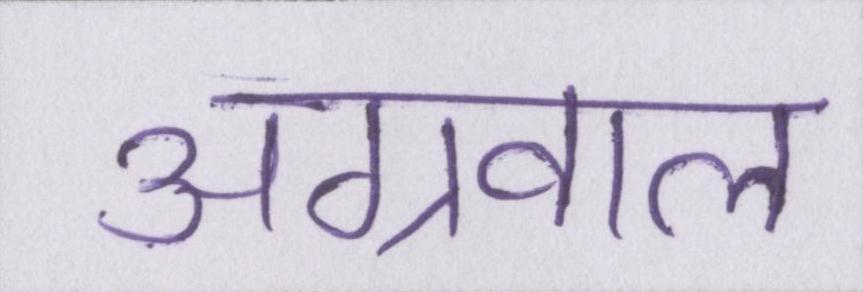 अग्रवाल